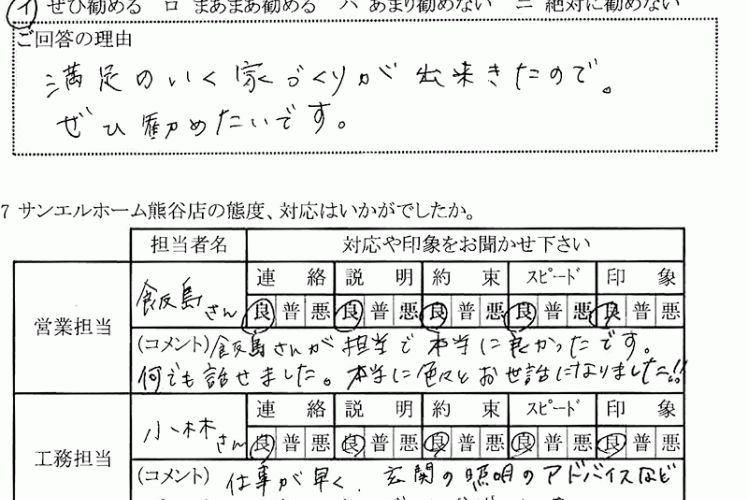 イ ぜひ勧める ロ まあまあ勧める ハ あまり勧めない ニ 絶対に勧めない
ご回答の理由
満足のいく家づくりが出来きたので。
ぜひ勧めたいです。
7 サンエルホーム熊谷店の態度、対応はいかがでしたか。
担当者名 対応や印象をお聞かせ下さい
営業担当 飯島さん 連絡 説明 約束 スピード 印象
良 普 悪 良 普 悪 良 普 悪 良 普 悪 良 普 悪
(コメント) 飯島さんが担当で本当に良かったです。
何でも話せました。本当に色々とお世話になりました!!
工務担当 小林さん 連絡 説明 約束 スピード 印象
良 普 悪 良 普 悪 良 普 悪 良 普 悪 良 普 悪
(コメント) 仕事が早く、玄関の照明のアドバイスなど